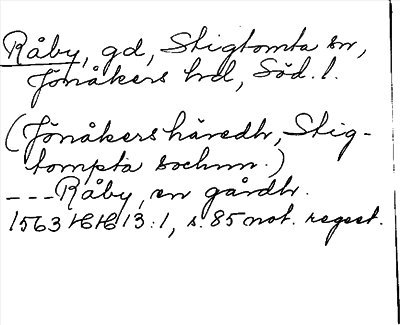 Råby, gd, Stigtomta sn,
Jönåkers hd, Söd. l.
(Jönåkers häredh, Stig-
tompta sochnn.)
---Råby, en gårdh.
1563 HH 13:1, s. 85 not. regest.